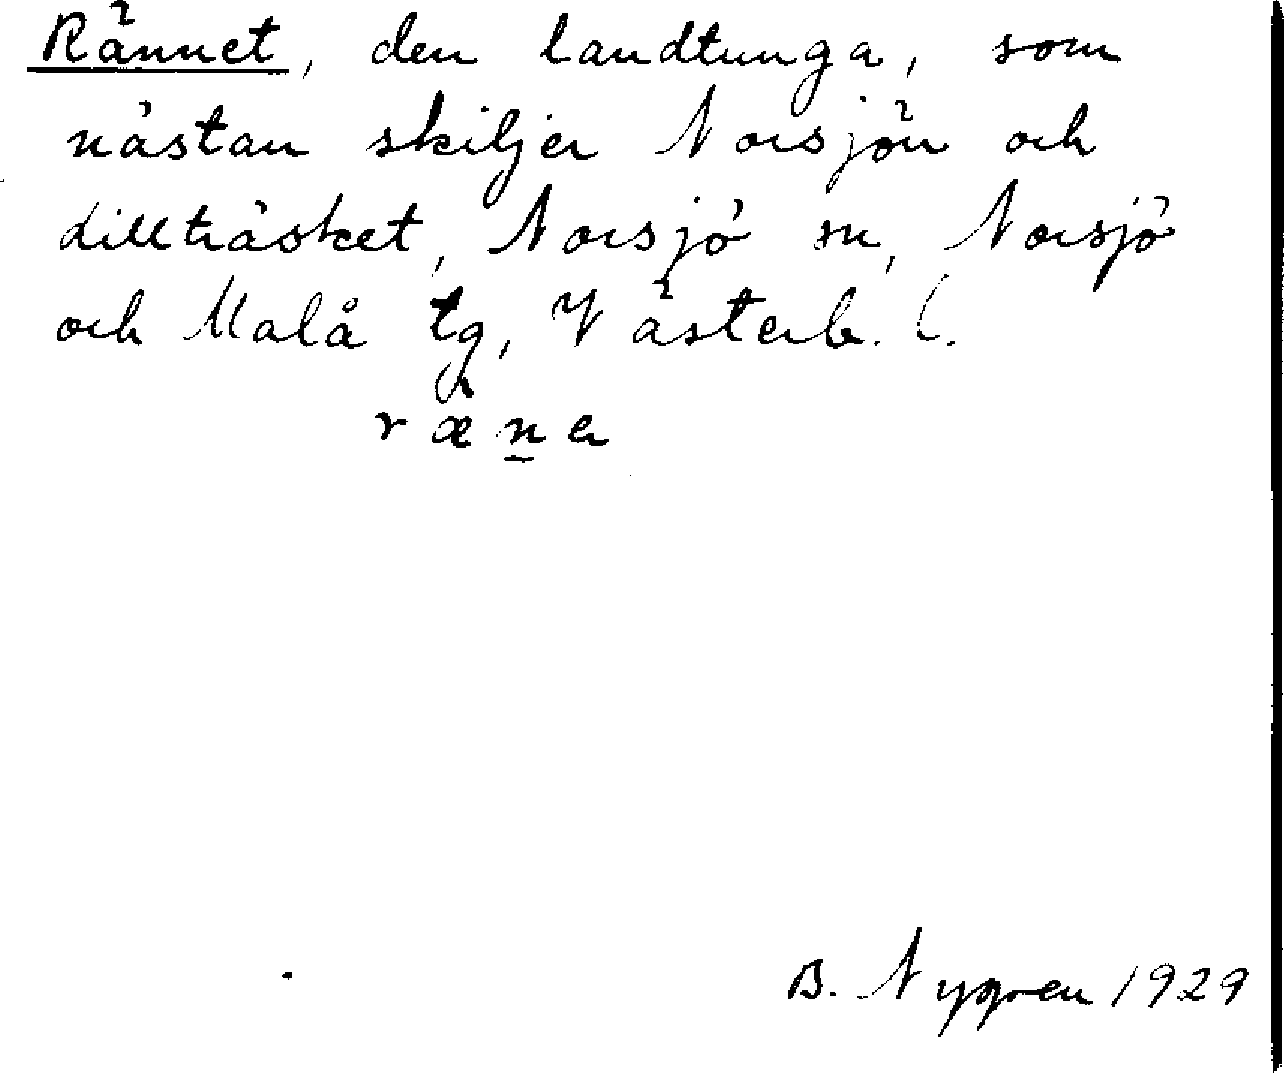 Rännet, den landtunga, som
nästan skiljer Norsjön och
Lillträsket, Norsjö sn, Norsjö
och Malå tg, Västerb. l.
ræ̂n̲a
B. Nygren 1929